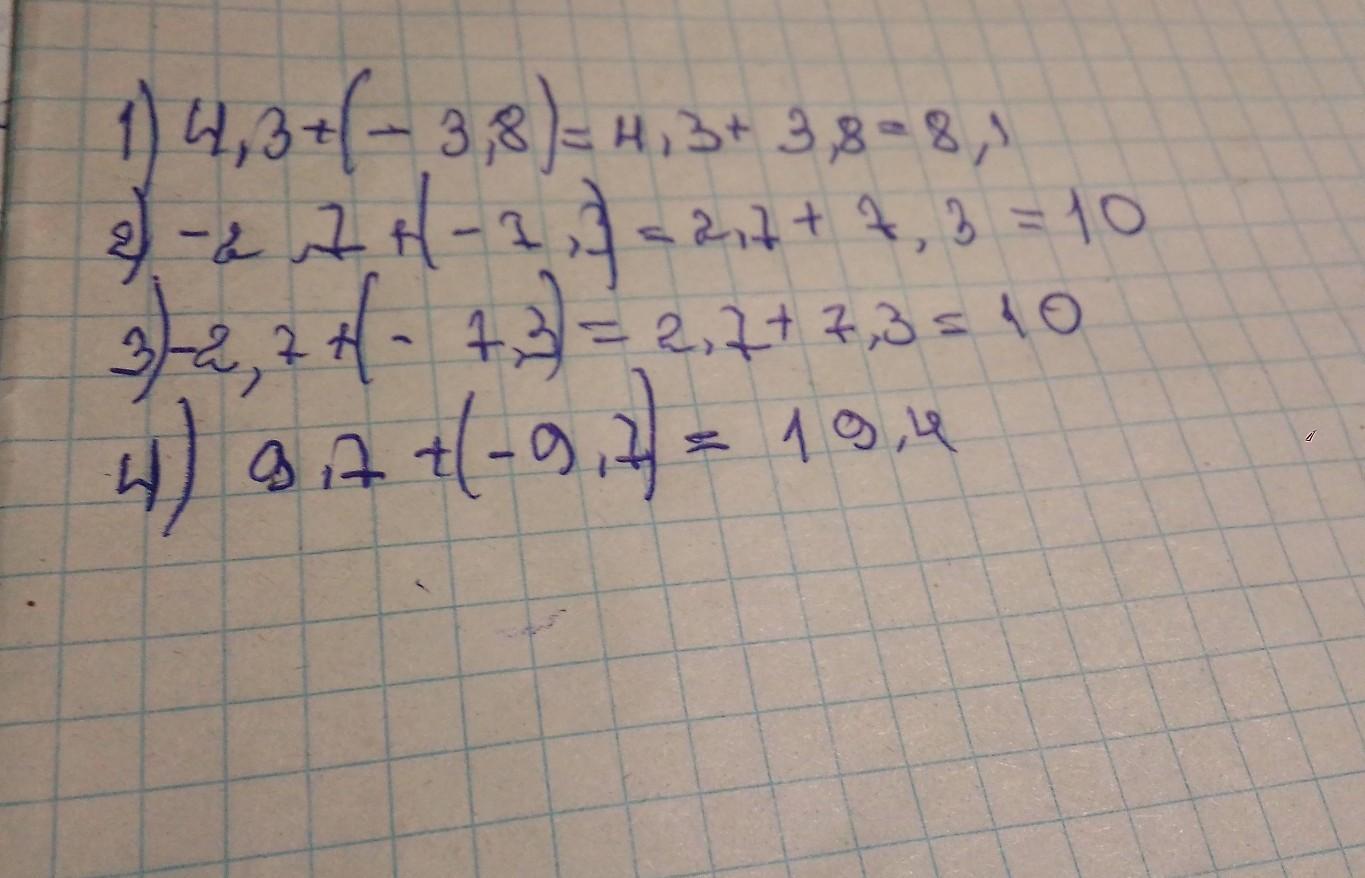 1) 4,3+(- 3,8)=4,3+ 3,8=8,1
2) -2,7+(-7,3)=2,7+ 7,3=10
3) -2,7+(- 7,3)=2,7+7,3=10
4) 9,7+(-9,7)= 19,4